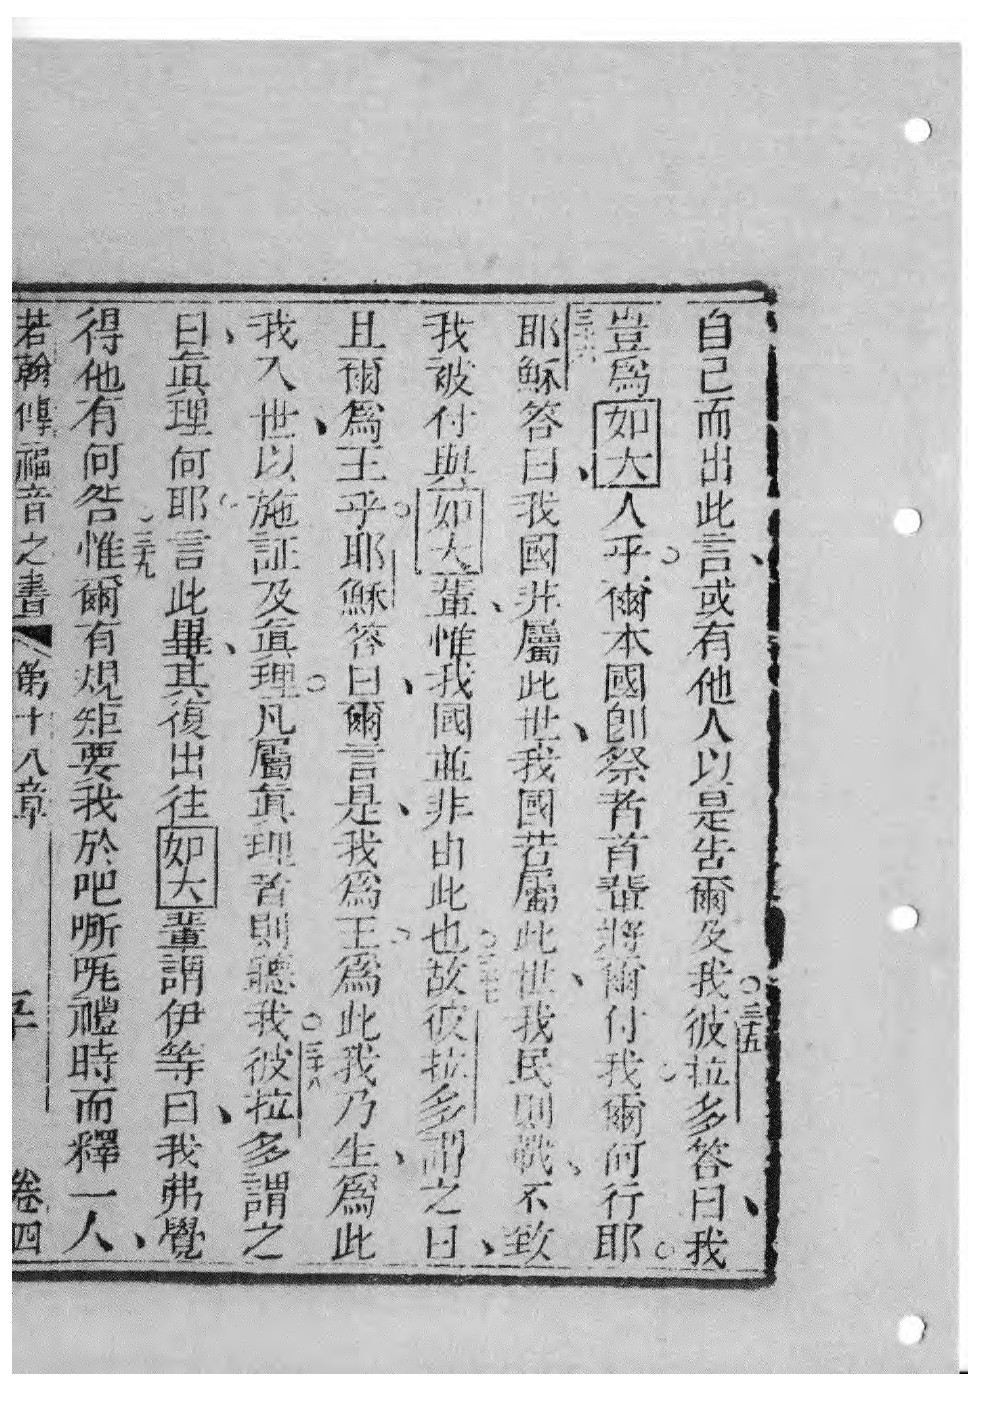 自己而出此言、或有他人以是告爾及我。○三五彼拉多答曰、我
豈爲如大人乎。爾本國卽祭者首輩將爾付我。爾何行耶。
三六耶穌答曰、我國非屬此世、我國若屬此世、我民則戰、不致
我被付與如大輩、惟我國並非由此也。○三七故彼拉多謂之曰、
且爾爲王乎。耶穌答曰、爾言是、我爲王。爲此我乃生、爲此
我入世、以施証及眞理。凡屬眞理者則聽我。○三十八彼拉多謂之
曰、眞理何耶。言此畢、其復出往如大輩謂伊等曰、我弗覺
得他有何咎。○三十九惟爾有規矩要我於吧𠸄咣禮時而釋一人、
若翰傳福音之書 第十八章 卷四